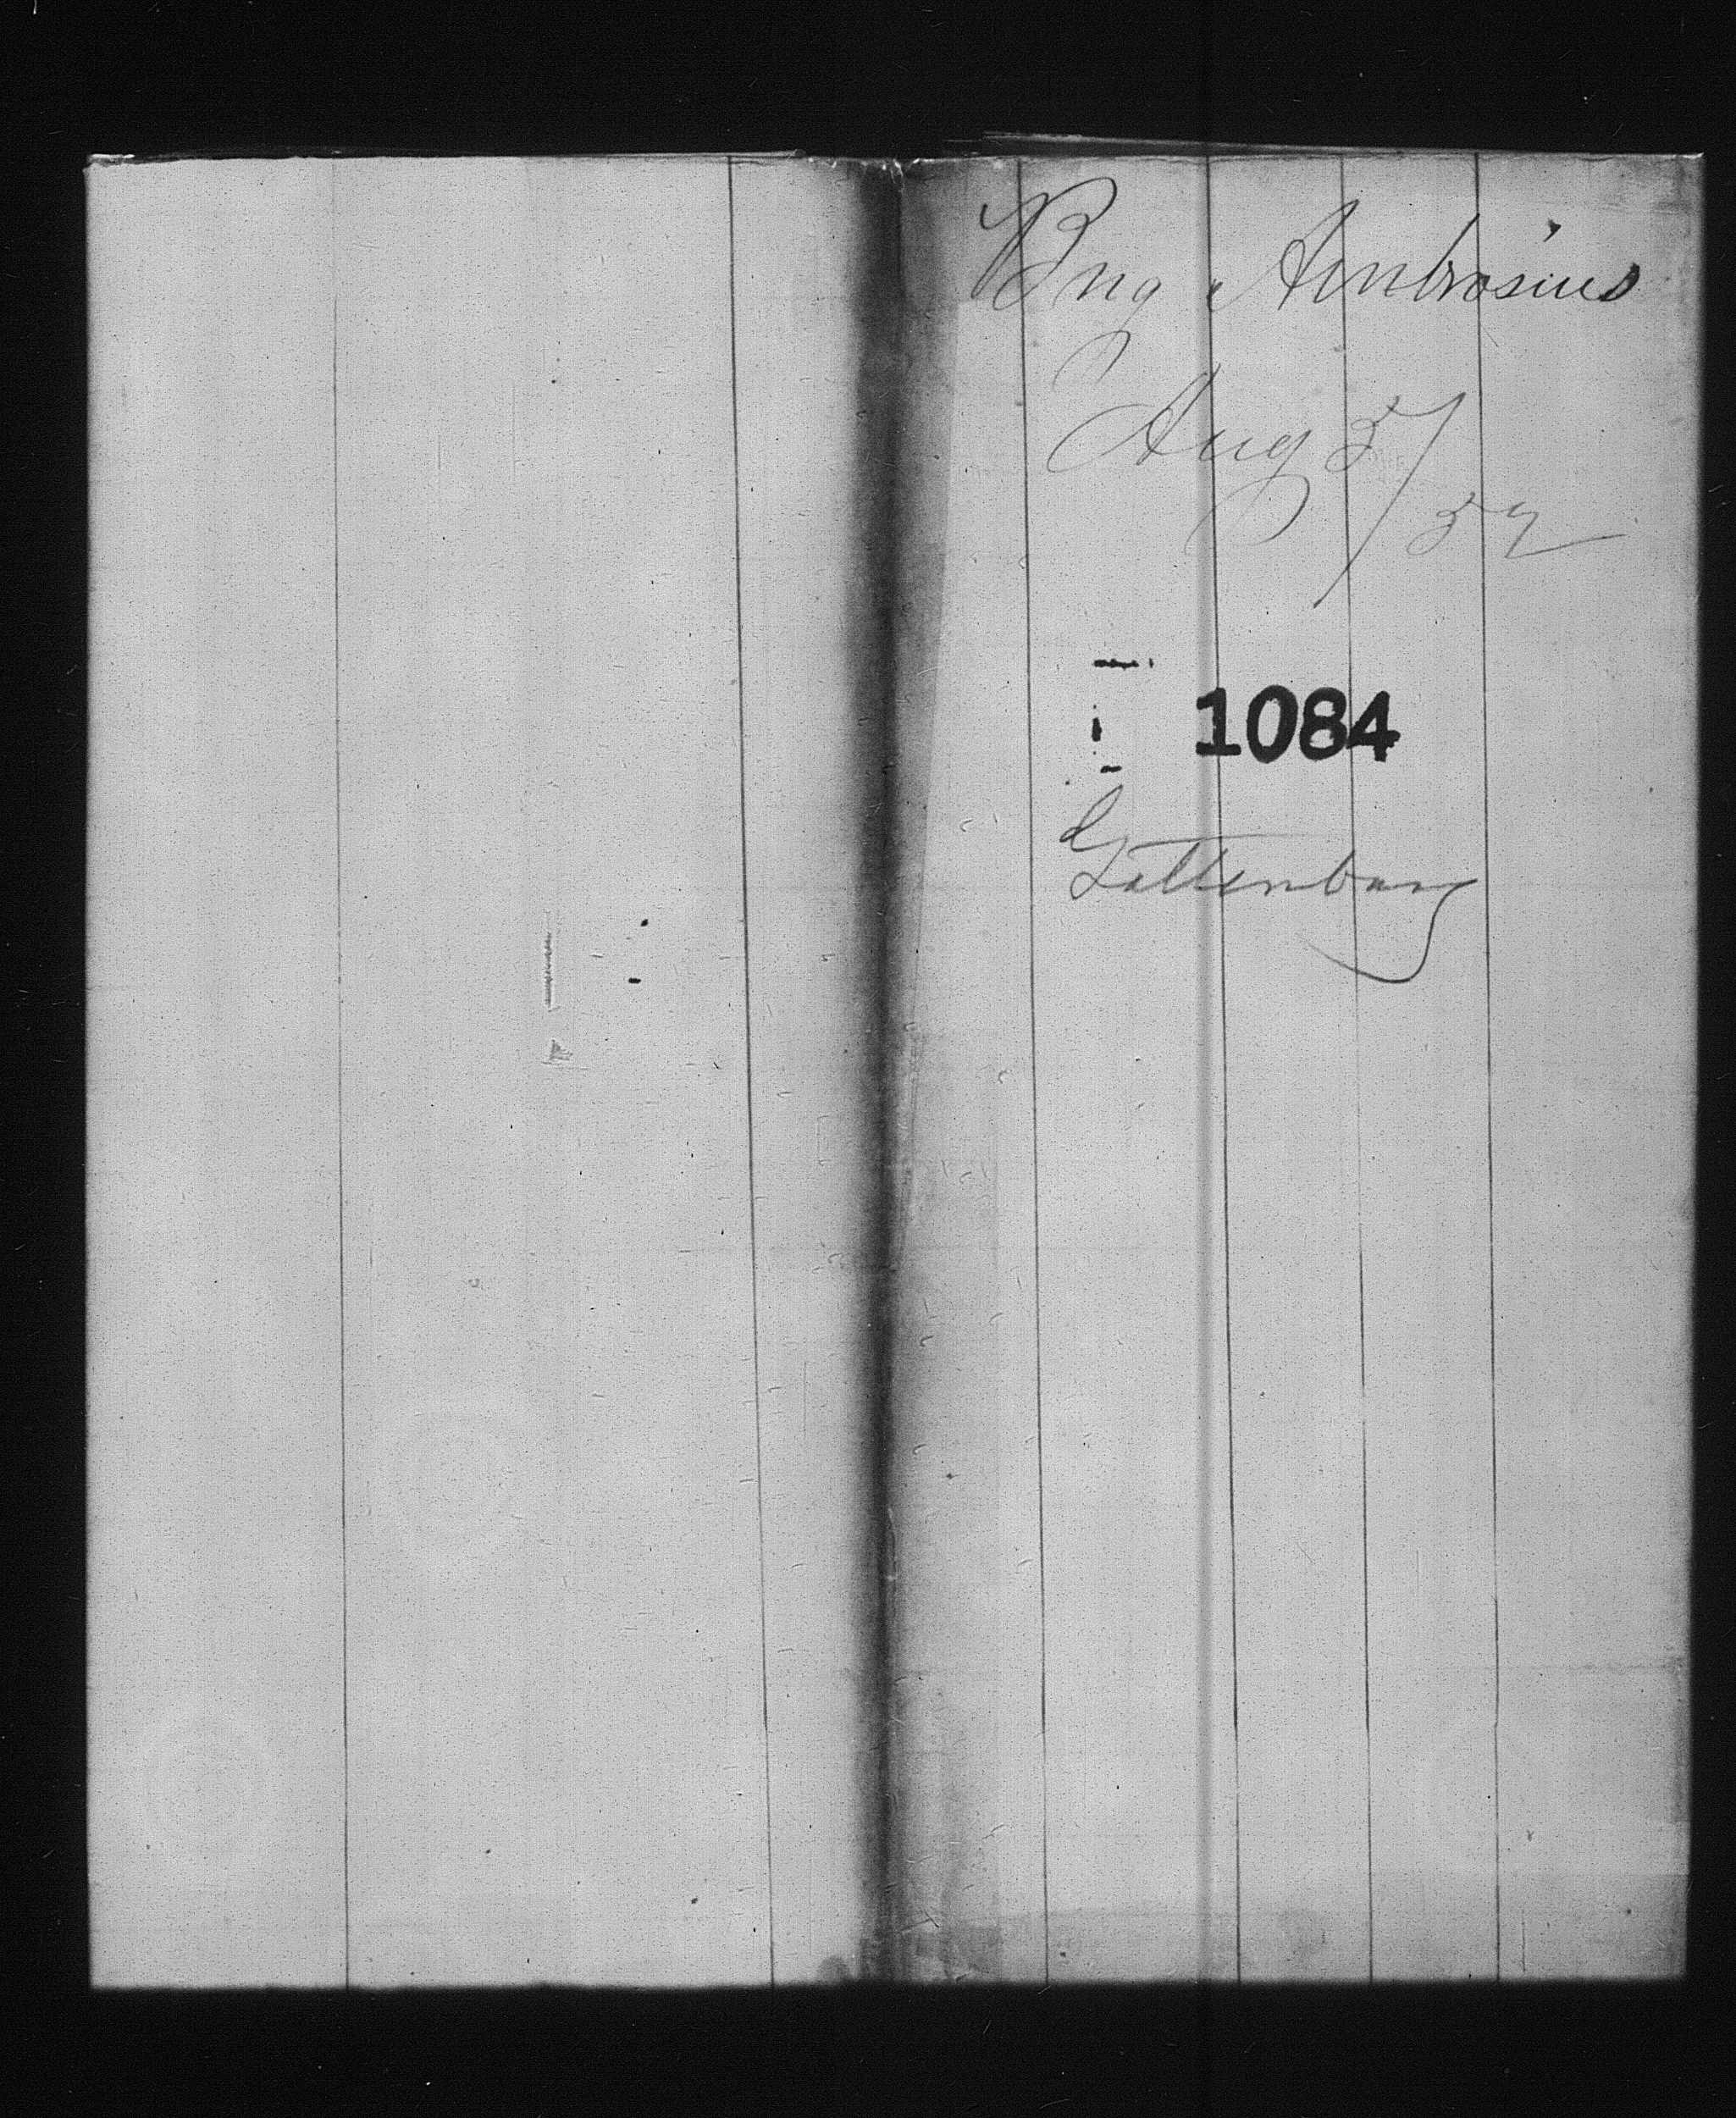 Brig Ambrosius
Aug 5/52
1084
Gottenburg